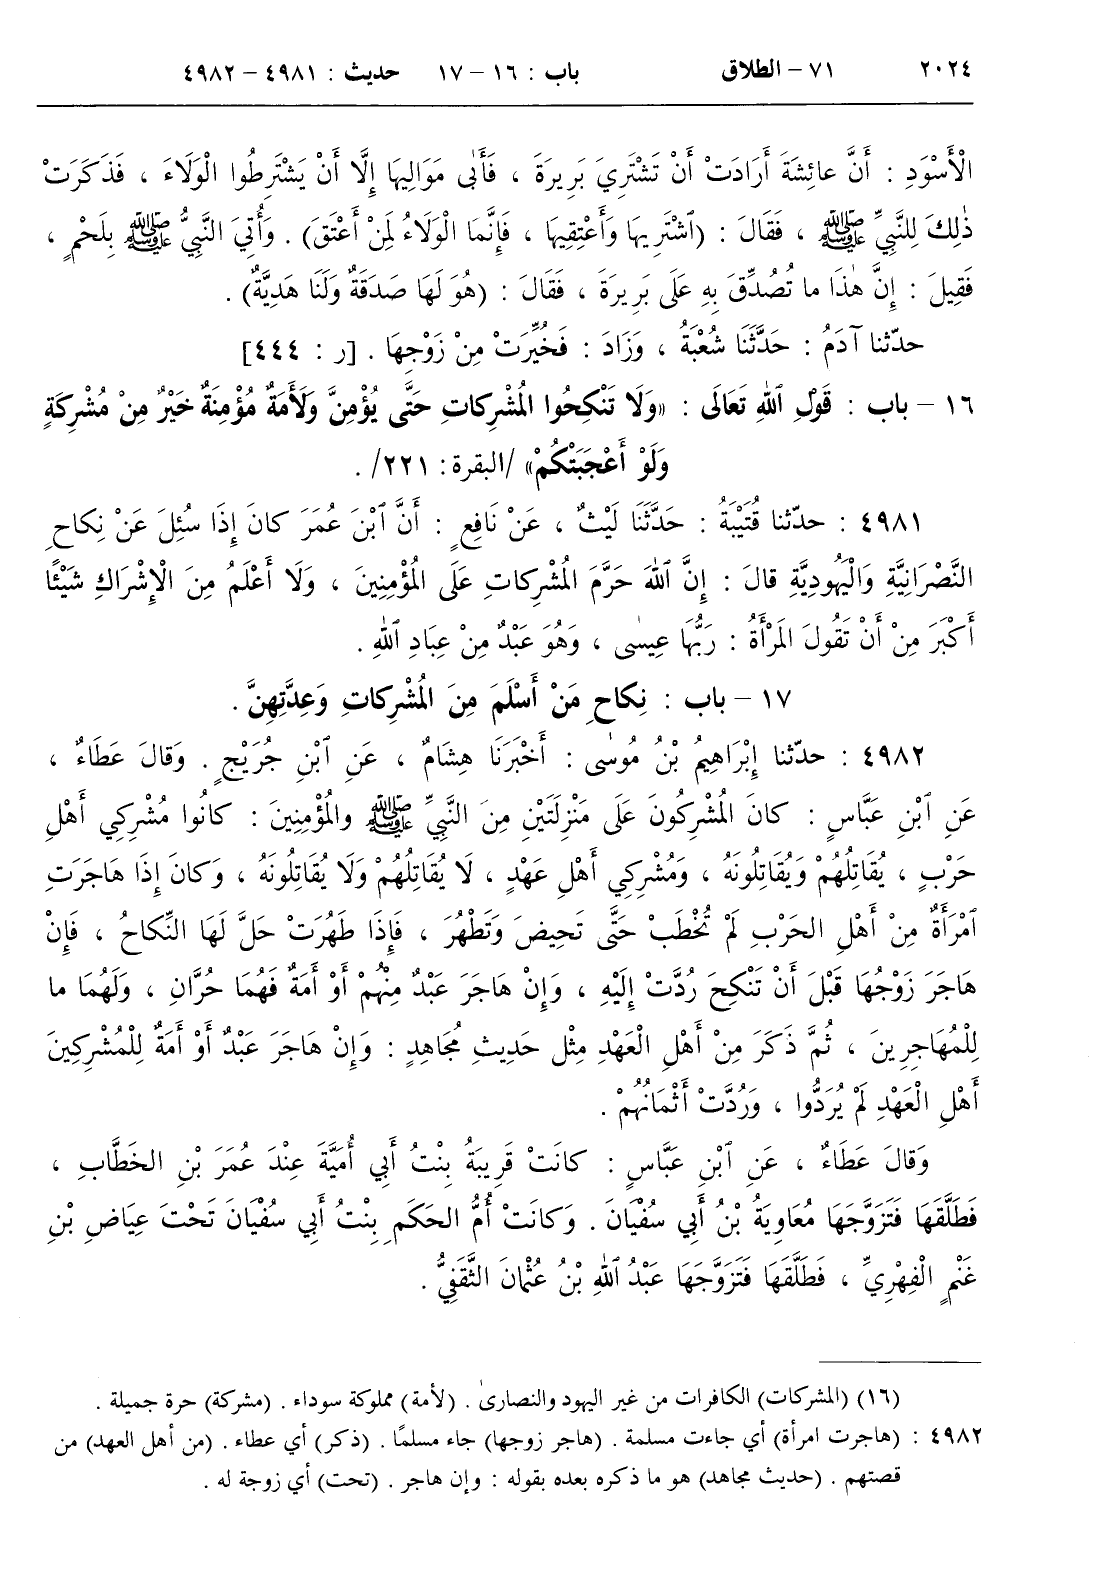 ٢٠٢٤ ٧١ – الطلاق باب : ١٦ – ١٧ حديث : ٤٩٨١ – ٤٩٨٢
الْأَسْوَدِ : أَنَّ عائِشَةَ أَرَادَتْ أَنْ تَشْتَرِيَ بَرِيرَةَ ، فَأَبٰى مَوَالِيهَا إِلَّا أَنْ يَشْتَرِطُوا الْوَلَاءَ ، فَذَكَرَتْ
ذٰلِكَ لِلنَّبِيِّ ﷺ ، فَقَالَ : (ٱشْتَرِيهَا وَأَعْتِقِيهَا ، فَإِنَّمَا الْوَلَاءُ لِمَنْ أَعْتَقَ) . وَأُتِيَ النَّبِيُّ ﷺ بِلَحْمٍ ،
فَقِيلَ : إِنَّ هٰذَا ما تُصُدِّقَ بِهِ عَلَى بَرِيرَةَ ، فَقَالَ : (هُوَ لَهَا صَدَقَةٌ وَلَنَا هَدِيَّةٌ) .
حدّثنا آدَمُ : حَدَّثَنَا شُعْبَةُ ، وَزَادَ : فَخُيِّرَتْ مِنْ زَوْجِهَا . [ر : ٤٤٤]
١٦ – باب : قَوْلِ ٱللهِ تَعَالَى : «وَلَا تَنْكِحُوا الْمُشْرِكاتِ حَتَّى يُؤْمِنَّ وَلَأَمَةٌ مُؤْمِنَةٌ خَيْرٌ مِنْ مُشْرِكَةٍ
وَلَوْ أَعْجَبَتْكُمْ» /البقرة: ٢٢١/ .
٤٩٨١ : حدّثنا قُتَيْبَةُ : حَدَّثَنَا لَيْثٌ ، عَنْ نَافِعٍ : أَنَّ ٱبْنَ عُمَرَ كانَ إِذَا سُئِلَ عَنْ نِكاحِ
النَّصْرَانِيَّةِ وَالْيَهُودِيَّةِ قالَ : إِنَّ ٱللهَ حَرَّمَ الْمُشْرِكاتِ عَلَى الْمُؤْمِنِينَ ، وَلَا أَعْلَمُ مِنَ الْإِشْرَاكِ شَيْئًا
أَكْبَرَ مِنْ أَنْ تَقُولَ الْمَرْأَةُ : رَبُّهَا عِيسٰى ، وَهُوَ عَبْدٌ مِنْ عِبَادِ ٱللهِ .
١٧ – باب : نِكاحِ مَنْ أَسْلَمَ مِنَ الْمُشْرِكاتِ وَعِدَّتِهِنَّ .
٤٩٨٢ : حدّثنا إِبْرَاهِيمُ بْنُ مُوسٰى : أَخْبَرَنَا هِشَامٌ ، عَنِ ٱبْنِ جُرَيْجٍ . وَقالَ عَطَاءٌ ،
عَنِ ٱبْنِ عَبَّاسٍ : كانَ الْمُشْرِكُونَ عَلَى مَنْزِلَتَيْنِ مِنَ النَّبِيِّ ﷺ والْمُؤْمِنِينَ : كانُوا مُشْرِكِي أَهْلِ
حَرْبٍ ، يُقَاتِلُهُمْ وَيُقَاتِلُونَهُ ، وَمُشْرِكِي أَهْلِ عَهْدٍ ، لَا يُقَاتِلُهُمْ وَلَا يُقَاتِلُونَهُ ، وَكانَ إِذَا هَاجَرَتِ
ٱمْرَأَةٌ مِنْ أَهْلِ الحَرْبِ لَمْ تُخْطَبْ حَتَّى تَحِيضَ وَتَطْهُرَ ، فَإِذَا طَهُرَتْ حَلَّ لَهَا النِّكاحُ ، فَإِنْ
هَاجَرَ زَوْجُهَا قَبْلَ أَنْ تَنْكِحَ رُدَّتْ إِلَيْهِ ، وَإِنْ هَاجَرَ عَبْدٌ مِنْهُمْ أَوْ أَمَةٌ فَهُمَا حُرَّانِ ، وَلَهُمَا ما
لِلْمُهَاجِرِينَ ، ثُمَّ ذَكَرَ مِنْ أَهْلِ الْعَهْدِ مِثْلَ حَدِيثِ مُجَاهِدٍ : وَإِنْ هَاجَرَ عَبْدٌ أَوْ أَمَةٌ لِلْمُشْرِكِينَ
أَهْلِ الْعَهْدِ لَمْ يُرَدُّوا ، وَرُدَّتْ أَثْمَانُهُمْ .
وَقالَ عَطَاءٌ ، عَنِ ٱبْنِ عَبَّاسٍ : كانَتْ قَرِيبَةُ بِنْتُ أَبِي أُمَيَّةَ عِنْدَ عُمَرَ بْنِ الخَطَّابِ ،
فَطَلَّقَهَا فَتَزَوَّجَهَا مُعَاوِيَةُ بْنُ أَبِي سُفْيَانَ . وَكانَتْ أُمُّ الحَكَمِ بِنْتُ أَبِي سُفْيَانَ تَحْتَ عِيَاضِ بْنِ
غَنْمٍ الْفِهْرِيِّ ، فَطَلَّقَهَا فَتَزَوَّجَهَا عَبْدُ ٱللهِ بْنُ عُثْمانَ الثَّقَفِيُّ .
(١٦) (المشركات) الكافرات من غير اليهود والنصارىٰ . (لأمة) مملوكة سوداء . (مشركة) حرة جميلة .
٤٩٨٢ : (هاجرت امرأة) أي جاءت مسلمة . (هاجر زوجها) جاء مسلمًا . (ذكر) أي عطاء . (من أهل العهد) من
قصتهم . (حديث مجاهد) هو ما ذكره بعده بقوله : وإن هاجر . (تحت) أي زوجة له .